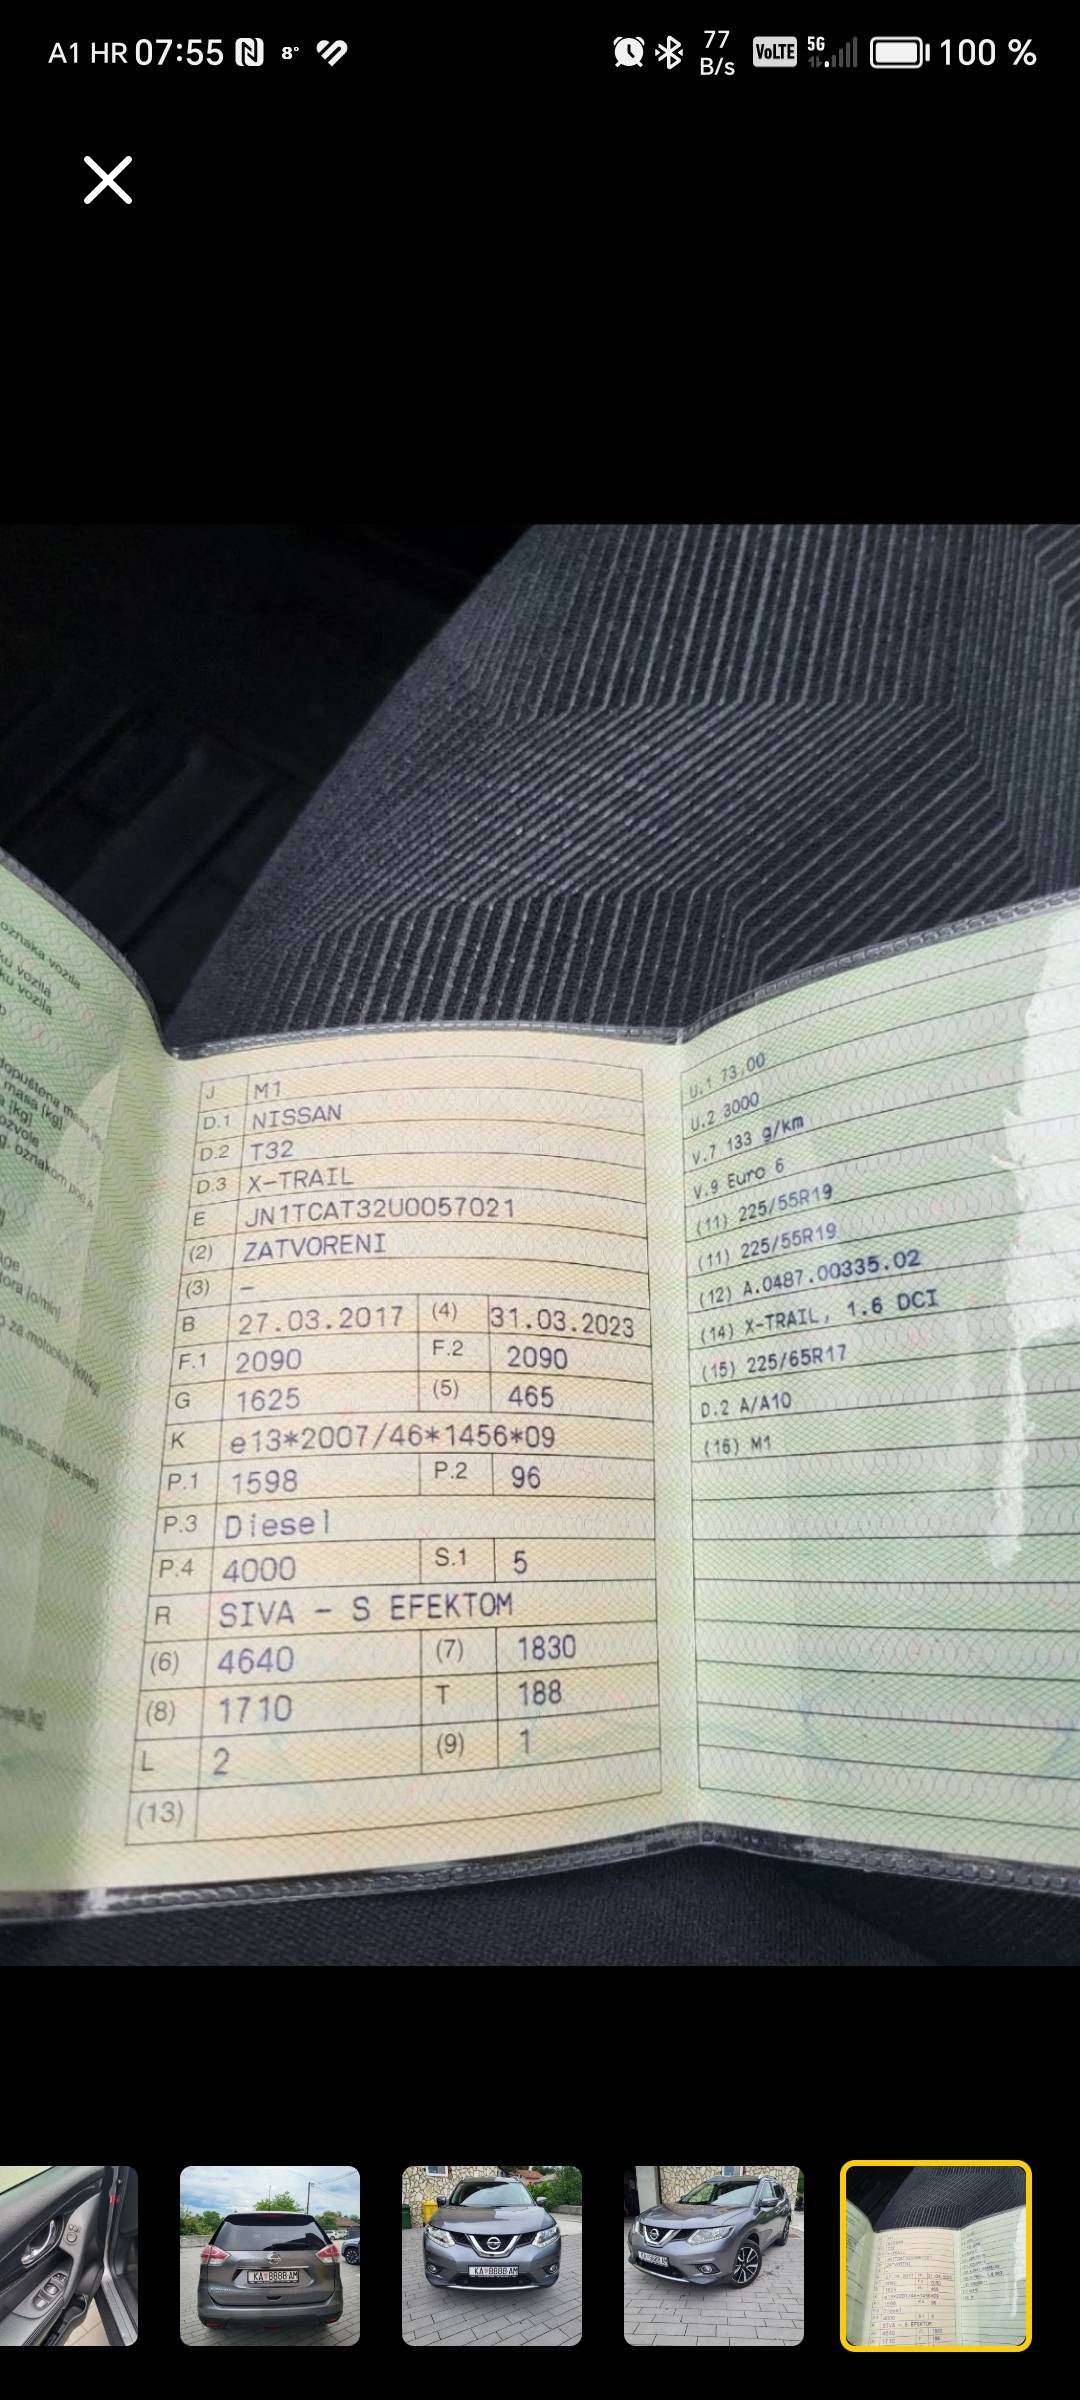 A1 HR 07:55 8° 77 B/s VoLTE 5G 100 %
oznaka vozila
ku vozila
ku vozila
J M1
D.1 NISSAN
D.2 T32
D.3 X-TRAIL
E JN1TCAT32U0057021
(2) ZATVORENI
(3) –
B 27.03.2017 (4) 31.03.2023
F.1 2090 F.2 2090
G 1625 (5) 465
K e13*2007/46*1456*09
P.1 1598 P.2 96
P.3 Diesel
P.4 4000 S.1 5
R SIVA - S EFEKTOM
(6) 4640 (7) 1830
(8) 1710 T 188
L 2 (9) 1
(13)
U.1 73,00
U.2 3000
V.7 133 g/km
V.9 Euro 6
(11) 225/55R19
(11) 225/55R19
(12) A.0487.00335.02
(14) X-TRAIL, 1.6 DCI
(15) 225/65R17
D.2 A/A10
(16) M1
KA 8888 AM
KA 8888 AM
KA 8888 AM